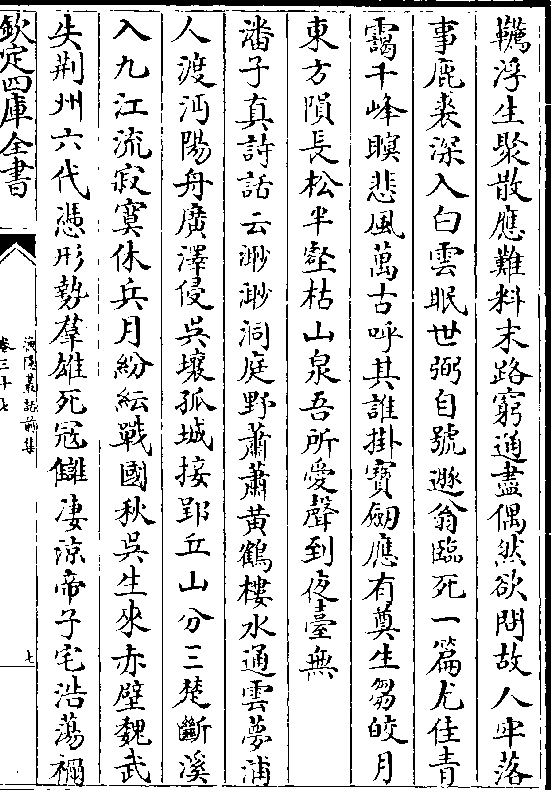 韉浮生聚散應難料末路窮通盡偶然欲問故人牢落
事鹿裘深入白雲眠世弼自號遯翁臨死一篇尤佳青
靄千峰暝悲風萬古呼其誰掛寶劒應有奠生芻皎月
東方隕長松半壑枯山泉吾所愛聲到夜臺無
潘子真詩話云渺渺洞庭野蕭蕭黃鶴樓水通雲夢浦
人渡沔陽舟廣澤侵吳壤孤城接郢丘山分三楚斷溪
入九江流寂寞休兵月紛紜戰國秋吳生來赤壁魏武
失荆州六代憑形勢羣雄死冦讎凄涼帝子宅浩蕩禰
欽定四庫全書
漁隱叢話前集
卷三十七
七